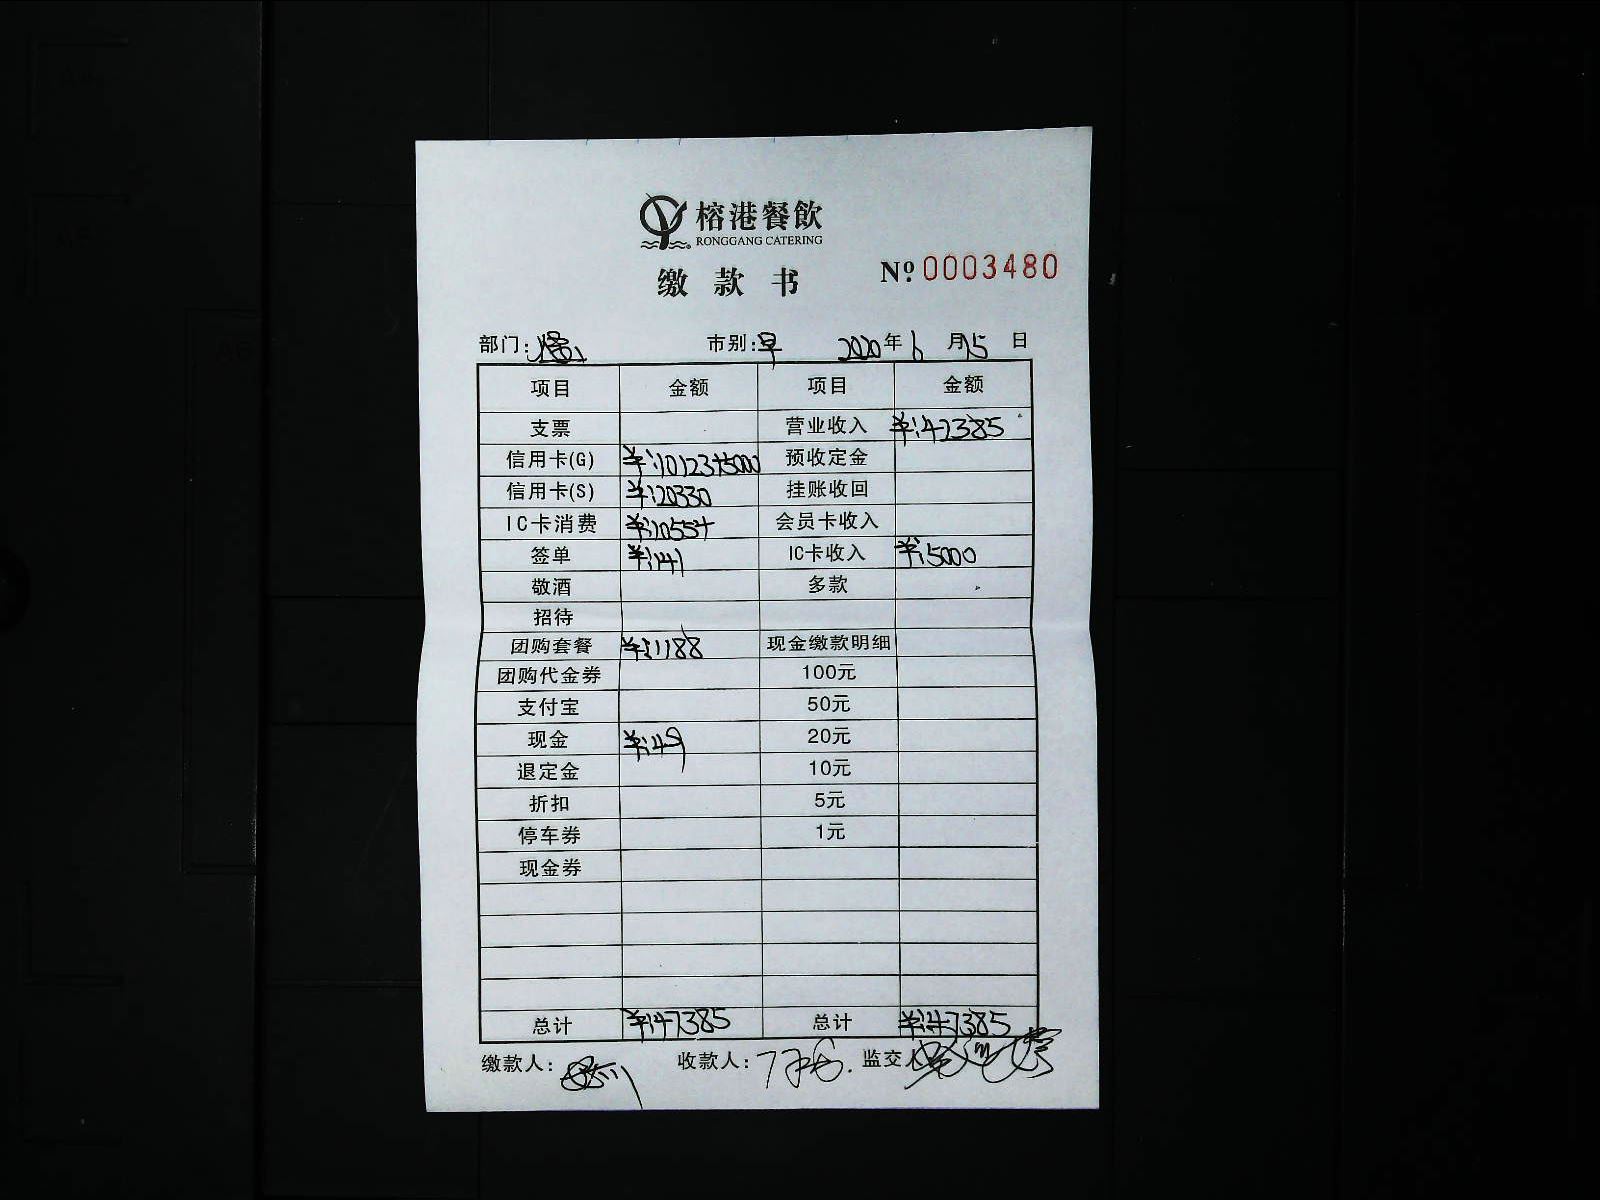 榕港餐飲
RONGGANG CATERING
缴款书
№ 0003480
部门: 市别:早 2020年6月15日
项目 金额 项目 金额
支票 营业收入 ¥:47385
信用卡(G) ¥:10123+5000 预收定金
信用卡(S) ¥:20330 挂账收回
IC卡消费 ¥:10554 会员卡收入
签单 ¥:141 IC卡收入 ¥:5000
敬酒 多款
招待
团购套餐 ¥:1188 现金缴款明细
团购代金券 100元
支付宝 50元
现金 ¥:49 20元
退定金 10元
折扣 5元
停车券 1元
现金券
总计 ¥:47385 总计 ¥:47385
缴款人: 收款人: 监交人